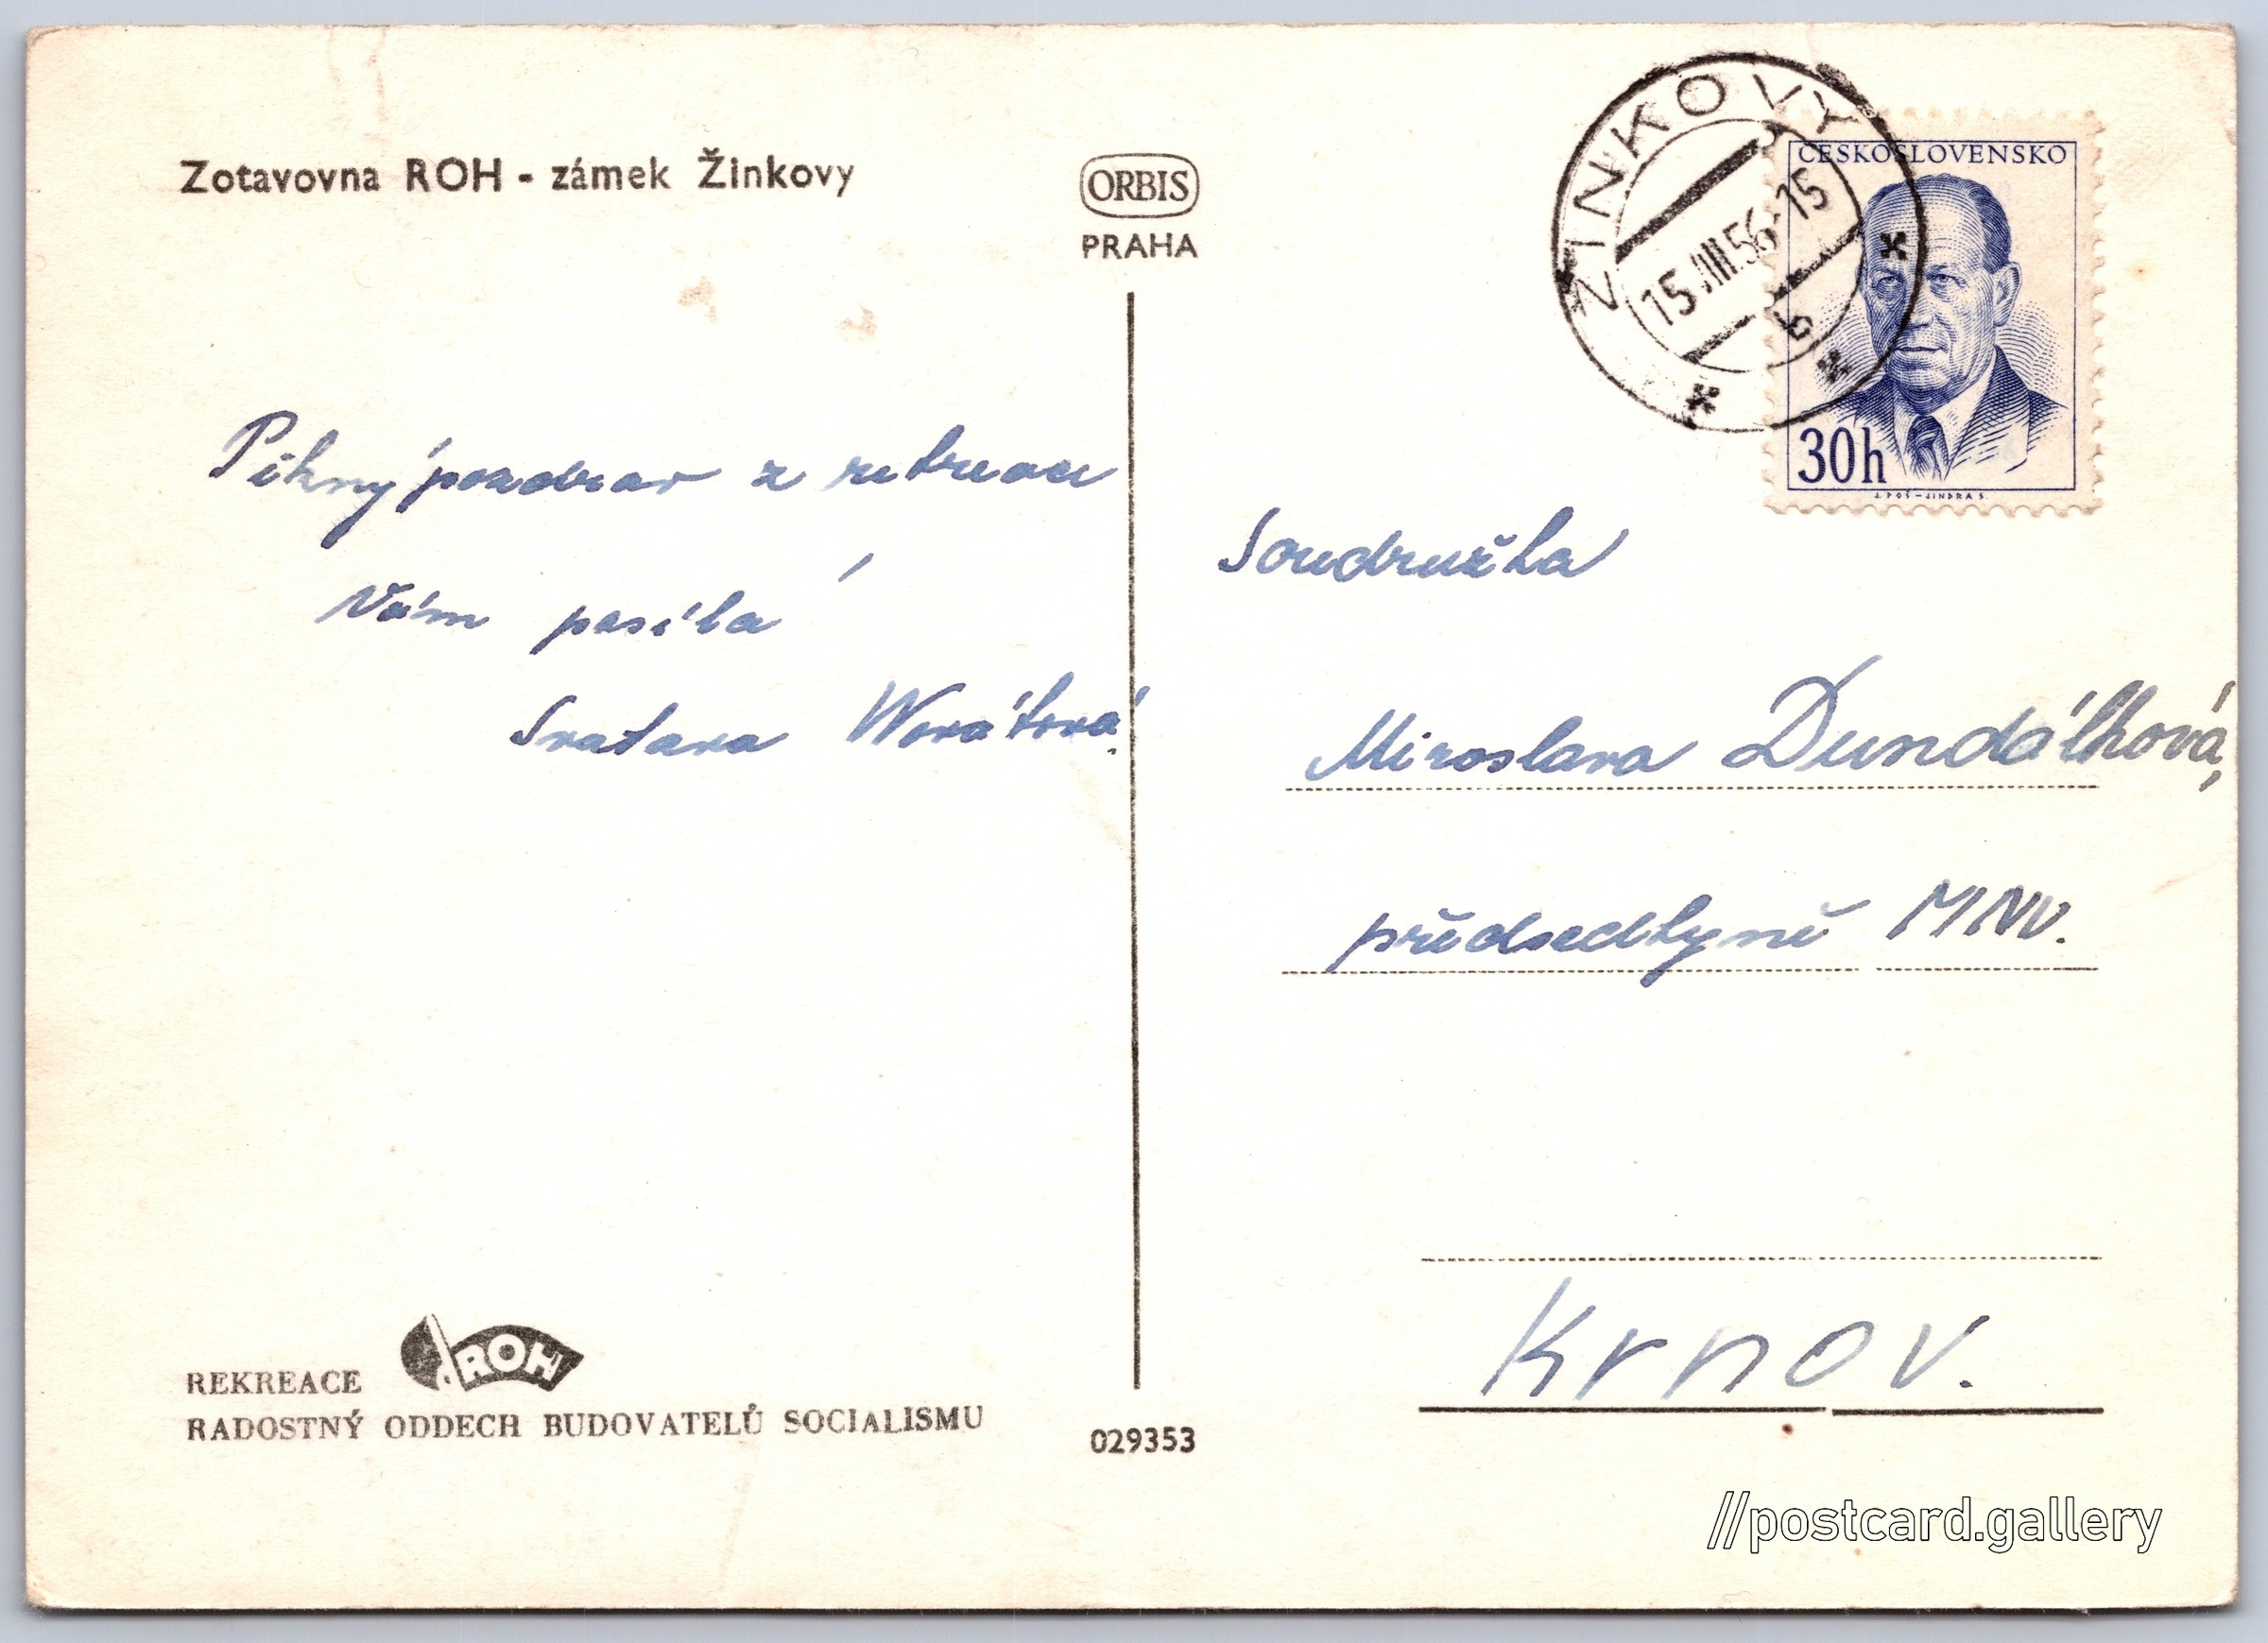 Zotavovna ROH - zámek Žinkovy
ORBIS
PRAHA
ŽINKOVY
15.VIII.56-15
ČESKOSLOVENSKO
30h
J. POŠ - JINDRA S.
Pěkný pozdrav z rekreace
Vám posílá
Svatava
Soudružka
Miroslava Dundálková,
předsedkyně MNV.
Krnov.
REKREACE ROH
RADOSTNÝ ODDECH BUDOVATELŮ SOCIALISMU
029353
//postcard.gallery